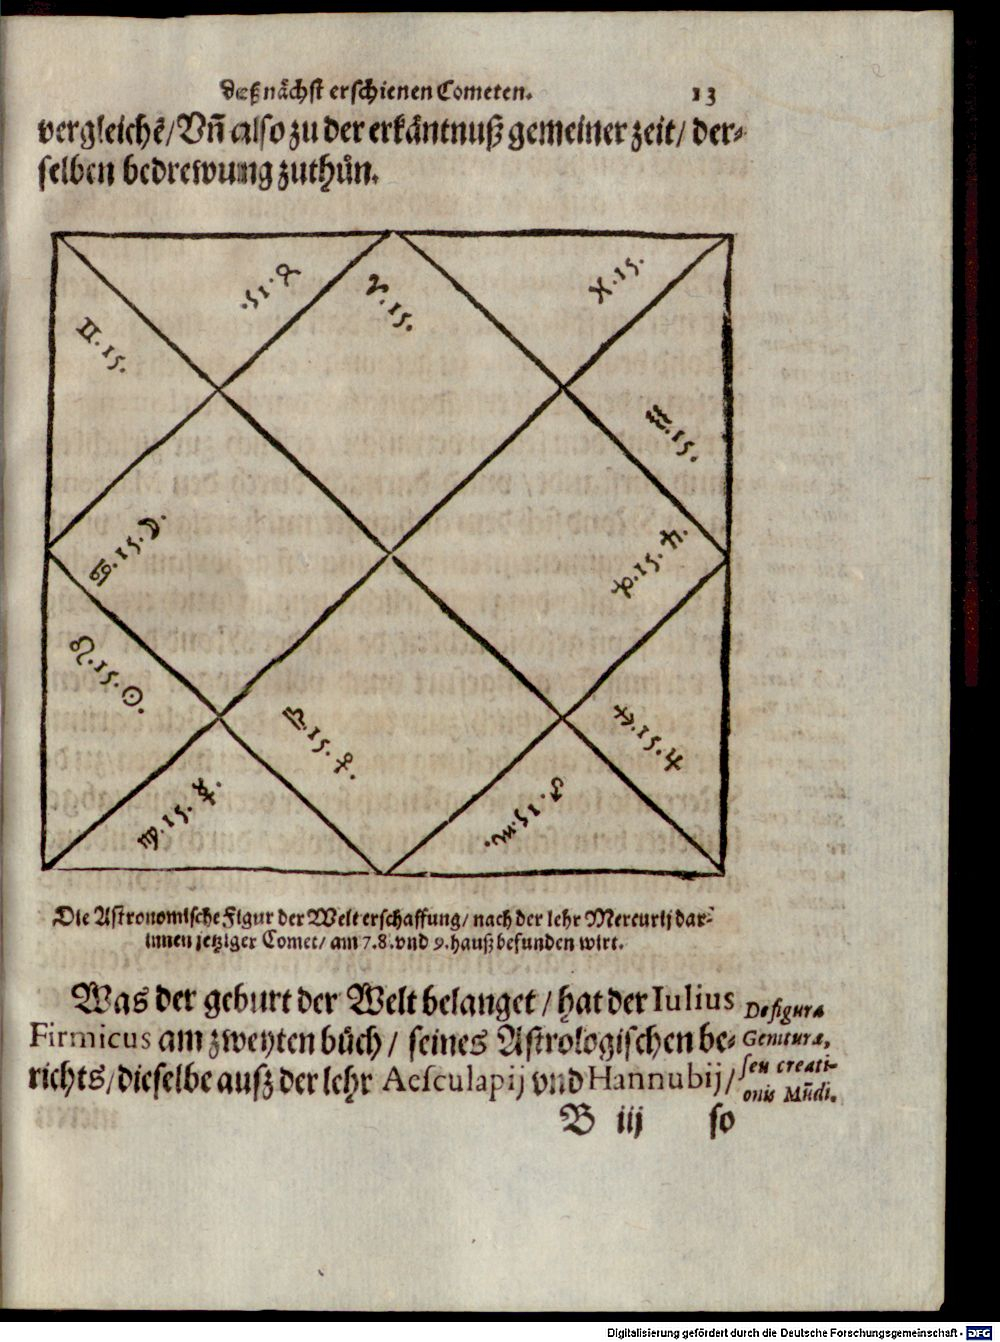 deß nächst erschienen Cometen. 13
vergleichẽ/ Vñ also zu der erkäntnuß gemeiner zeit/ der⸗
selben bedrewung zuthůn.
♉.15.
♈.15.
♓.15.
♊.15.
♒.15.
♋.15.☽.
♑.15.♄.
♌.15.☉.
♎.15.♀.
♐.15.♃
♍.15.☿.
♏.15.♂
Die Astronomische Figur der Welt erschaffung/ nach der lehr Mercurij dar⸗
innen jetziger Comet/ am 7.8. vnd 9. hauß befunden wirt.
Was der geburt der Welt belanget/ hat der Iulius
Firmicus am zweyten bůch/ seines Astrologischen be⸗
richts/ dieselbe auſz der lehr Aesculapij vnd Hannubij/
De figura
Genituræ,
seu creati-
onis Mũdi.
B iij so
Digitalisierung gefördert durch die Deutsche Forschungsgemeinschaft - DFG